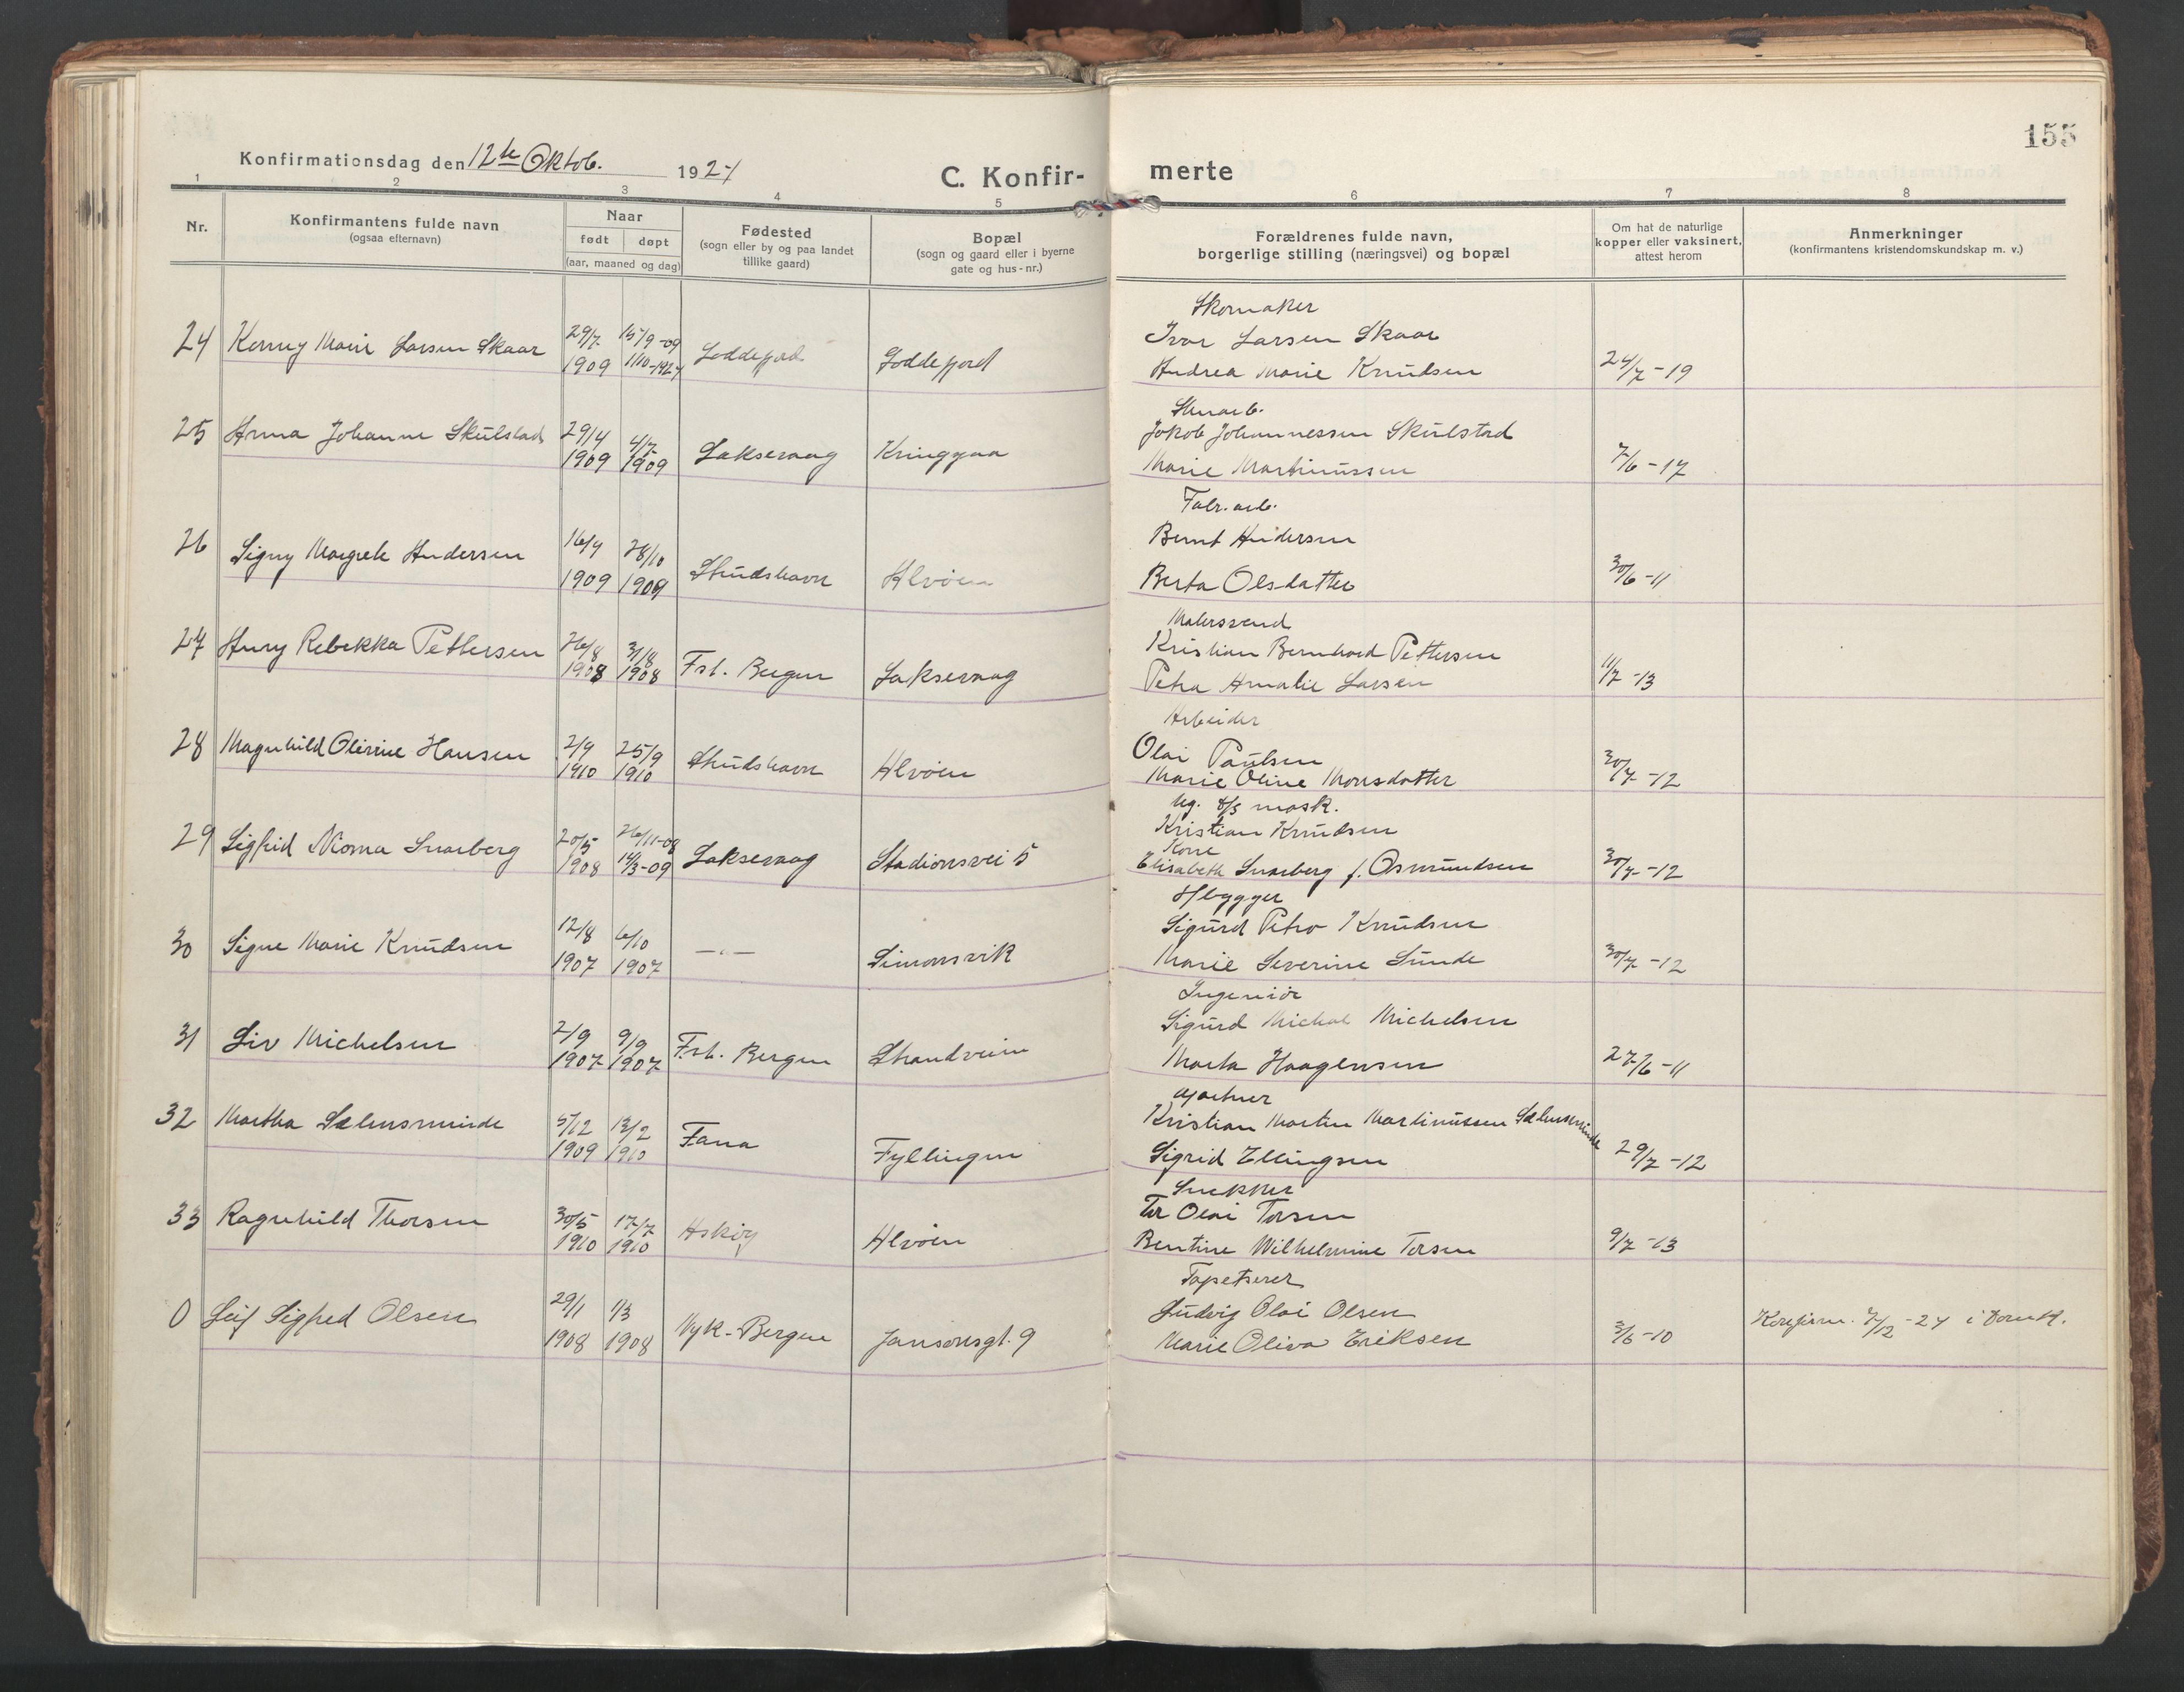 155
Konfirmationsdag den 12te Oktob. 1924
C. Konfir-
merte
1 2 3 4 5 6 7 8
Nr.
Konfirmantens fulde navn
(ogsaa efternavn)
Naar
født døpt
(aar, maaned og dag)
Fødested
(sogn eller by og paa landet
tillike gaard)
Bopæl
(sogn og gaard eller i byerne
gate og hus-nr.)
Forældrenes fulde navn,
borgerlige stilling (næringsvei) og bopæl
Om hat de naturlige
kopper eller vaksinert,
attest herom
Anmerkninger
(konfirmantens kristendomskundskap m. v.)
Skomaker
24 Marie Larsen Skaar 29/7 1909 15/9-09 1/10-1924 Loddefjord Loddefjord
Ivar Larsen Skaar
Andrea Marie Knudsen 24/7-19
25 Anna Johanne Skulstad 29/4 1909 4/7 1909 Laksevaag Kringsjaa
Jakob Johannessen Skulstad
Marie Martinussen 7/6-17
Fabr. arb.
26 Signy Margrete Andersen 16/4 1909 28/10 1909 Skudshavn Alvøen
Bernt Andersen
Berta Olsdatter 30/6-11
Malersvend
27 Anny Rebekka Pettersen 26/8 1908 31/8 1908 Fst. Bergen Laksevaag
Kristian Bernhard Pettersen
Petra Amalie Larsen 11/7-13
Arbeider
28 Magnhild Olivine Hansen 2/9 1910 25/9 1910 Skudshavn Alvøen
Olai Paulsen
Marie Oline Monsdatter 30/7-12
Ug. d/s mask.
29 Sigfrid Norma Snarberg 20/5 1908 26/11-08 14/3-09 Laksevaag Stadionsvei 5
Kristian Knudsen
Kone
Elisabeth Snarberg f. Osmundsen 30/7-12
30 Signe Marie Knudsen 12/8 1907 6/10 1907 —"— Simonsvik
Sigurd Petro Knudsen
Marie Severine Sunde 30/7-12
Ingeniør
31 Liv Michelsen 2/9 1907 9/9 1907 Fst. Bergen Strandveien
Sigurd Michal Michelsen
Marta Haagensen 27/6-11
Gartner
32 Martha Sælensminde 5/12 1909 13/2 1910 Fana Fyllingen
Kristian Martin Martinussen Sælensminde
Sigrid Ellingsen 29/7-12
Snekker
33 Ragnhild Thorsen 30/5 1910 17/7 1910 Askøy Alvøen
Tor Olai Torsen
Bentine Wilhelmine Torsen 9/7-13
Tapetserer
0 Leif Sigfred Olsen 29/1 1908 1/3 1908 Nyk-Bergen Jansonsgt. 9
Ludvig Olai Olsen
Marie Oliva Eriksen 3/6-10 Konfirm. 7/12-24 i Domk.